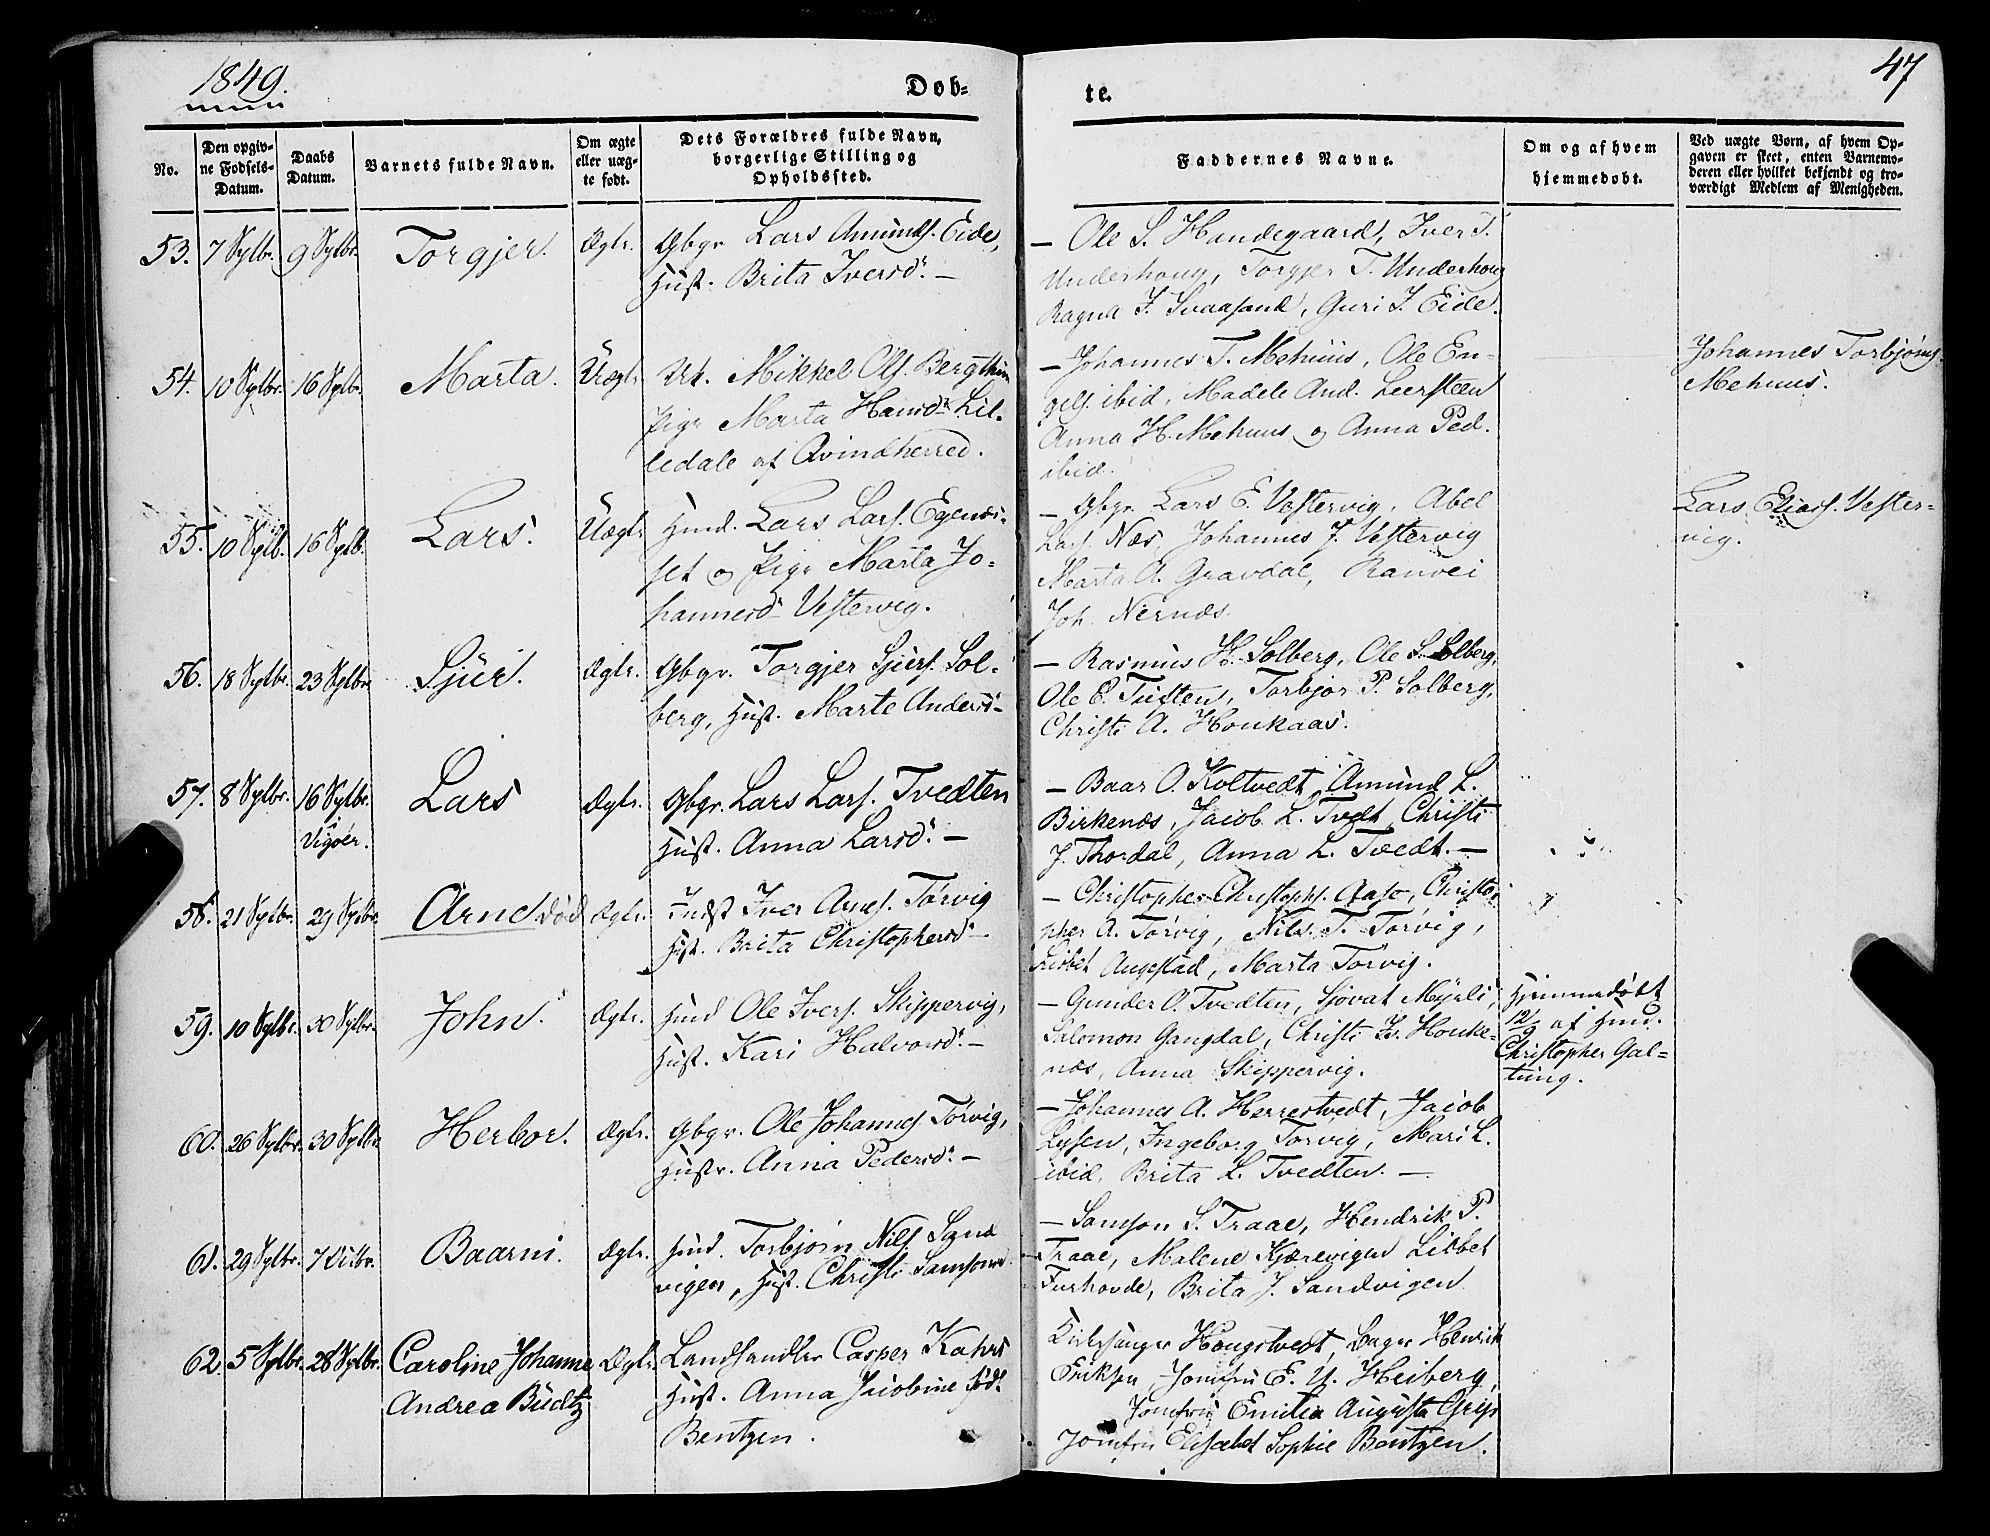 1849.
Døb-
te.
47
No.
Den opgiv-
ne Fødsels-
Datum.
Daabs
Datum.
Barnets fulde Navn.
Om ægte
eller uæg-
te født.
Dets Forældres fulde Navn,
borgerlige Stilling og
Opholdssted.
Faddernes Navne.
Om og af hvem
hjemmedøbt.
Ved uægte Børn, af hvem Op-
gaven er skeet, enten Barnemo-
deren eller hvilket bekjendt og tro-
værdigt Medlem af Menigheden.
53. 7 Sptbr. 9 Sptbr. Torgjer. Ægte. Gbgr. Lars Amunds. Eide,
Hust. Brita Iversdr. —
— Ole S. Handegaard, Iver T.
Underhoug, Torgjer T. Underhoug
Ragna J. Svaasand, Guri I. Eide.
54. 10 Sptbr. 16 Sptbr. Marta. Uægte. Mikkel Ols. Bergthun
Pige Marta Hansdr. Lil-
ledale af Qvindherred.
— Johannes T. Mehuus, Ole En-
gels. ibid, Madele And. Leersteen
Anna H. Mehuus og Anna Ped.
ibid.
Johannes Torbjørns.
Mehuus.
55. 10 Sptb. 16 Sptb. Lars. Uægte Hmd. Lars Lars. Egenæs-
set og Pige Marta Jo-
hannesdr. Vestervig.
— Gbgr. Lars E. Vestervig, Abel
Lars. Næs, Johannes J. Vestervig
Marta A. Gravdal, Ranvei
Joh. Nernæs.
Lars Elias. Vester-
vig.
56. 18 Sptbr. 23 Sptbr. Sjur. Ægte. Gbgr. Torgjer Sjurs. Sol-
berg, Hust. Marte Andersd.
— Rasmus H. Solberg, Ole S. Solberg,
Ole E. Tuften, Torbjør P. Solberg,
Christi A. Houkaas.
57. 8 Sptbr. 16 Sptbr. Lars Ægte. Gbgr. Lars Lars. Tvedten
Vigøer.
Hust. Anna Larsdr. —
— Baar O. Koltvedt, Amund L.
Birkenæs, Jacob L. Tvedt, Christi
J. Thordal, Anna L. Tvedt. —
58. 21 Sptbr. 29 Sptbr. Arne død Ægte. Indst Iver Arnes. Tørvig
Hust. Brita Christophersdr. —
— Christopher Christophs. Aase, Christo-
pher A. Tørvig, Nils T. Tørvig,
Lisbet Augestad, Marta Torvig.
59. 10 Sptbr. 30 Sptbr. John. Ægte. Hmd Ole Ivers. Skippervig,
Hust. Kari Halvorsdr. —
— Gunder O. Tvedten, Sjovat Myrli,
Salomon Gangdal, Christi Iv. Houke-
næs, Anna Skippervig.
Hjemmedøbt
12/9 af Hmd.
Christopher Gal-
tung.
60. 26 Sptbr. 30 Sptbr. Herbor. Ægte. Gbgr. Ole Johannes. Tørvig,
Hustr. Anna Pedersdr. —
— Johannes A. Herrestvedt, Jacob
Lysen, Ingeborg Torvig, Mari L.
ibid, Brita L. Tvedten. —
61. 29 Sptbr. 7 Octbr. Baarni. Ægte. Hmd. Torbjørn Nils. Sand
vigen, Hust. Christi Samsonsd.
— Samson S. Traae, Hendrik P.
Traae, Malene Kjærevigen Lisbet
Furhovde, Brita J. Sandvigen
62. 5 Sptbr. 28 Sptbr. Caroline Johanne Ægte. Landhandler Casper Kahrs
Andrea Budtz
Hust. Anna Jacobine født
Bentzen.
Kirkesanger Hougstvedt, Henrik
Eriksen Jomfru E. U. Heiberg,
Jomfru Emilia Augusta Grip
Jomfru Elisabet Sophie Bentzen.